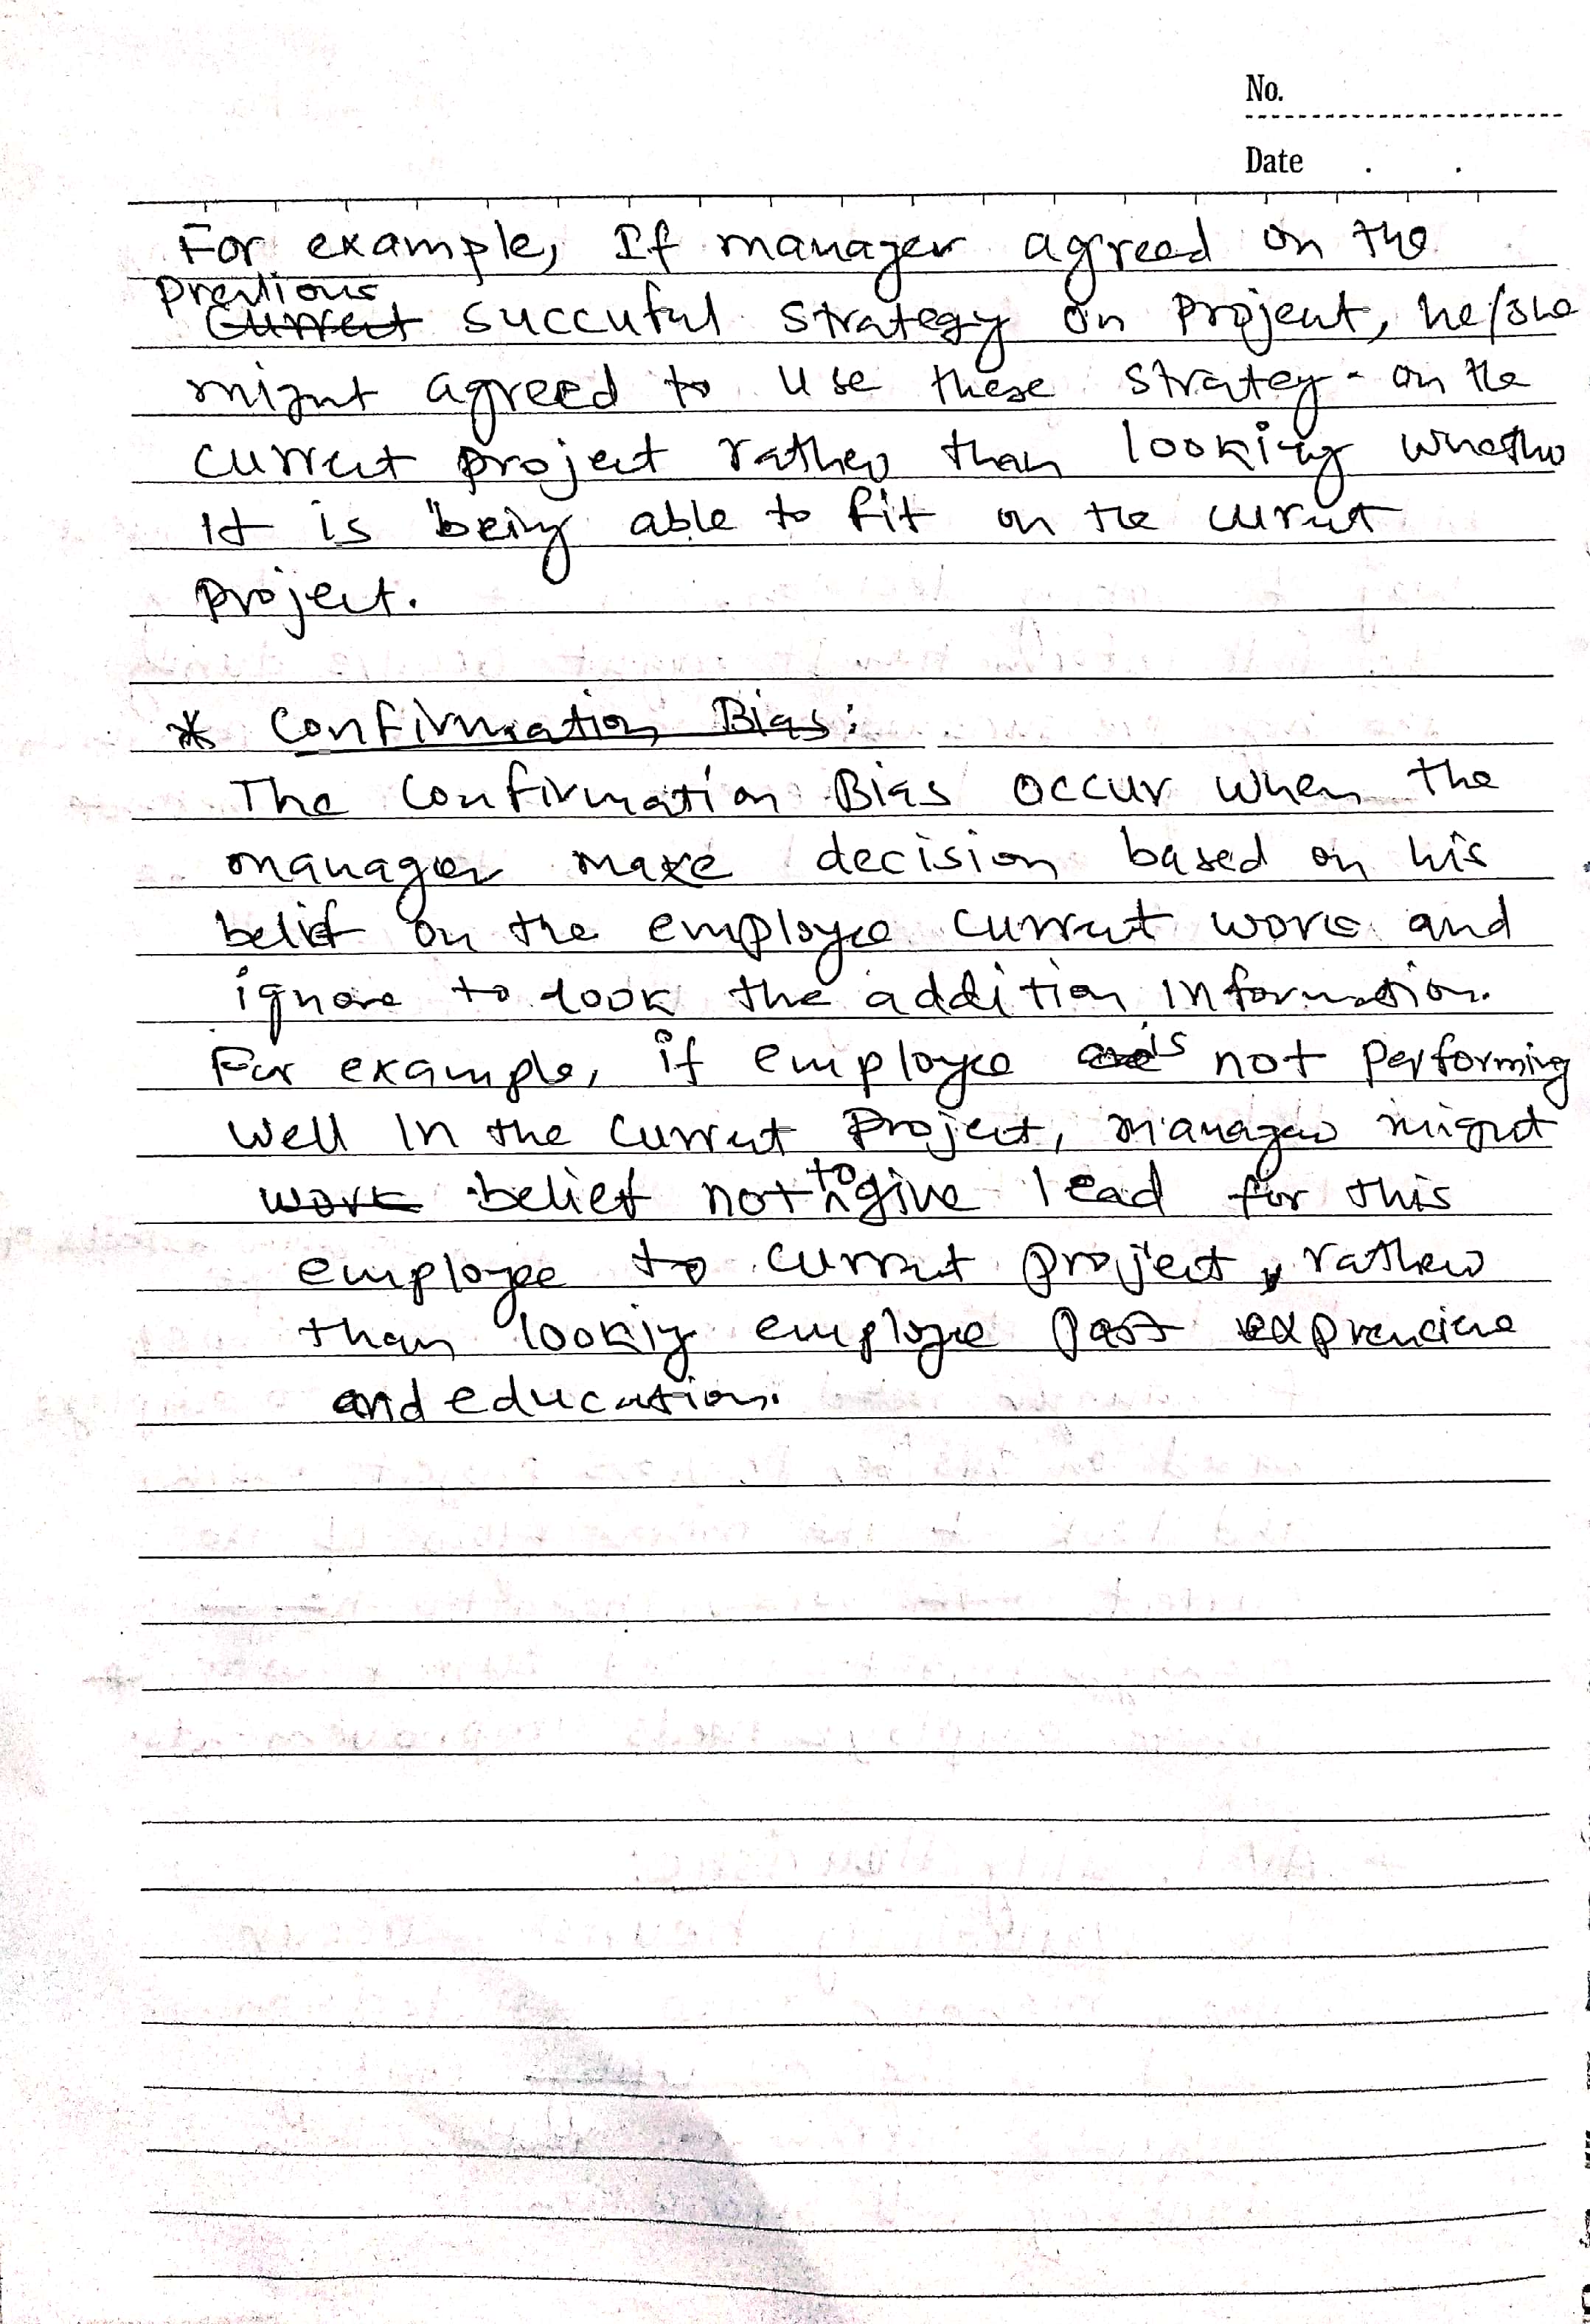 No.
Date . .
For example, If manager agreed on the
previous
Current succuful strategy on project, he/she
might agreed to use these strategy - on the
current project rather than looking whether
it is being able to fit on the current
project.
* Confirmation Bias:
The Confirmation Bias occur when the
manager make decision based on his
belief on the employee current work and
ignore to look the addition information.
For example, if employee are is not performing
well in the current project, manager might
work belief not to give lead for this
employee to current project, rather
than looking employee past
and education.